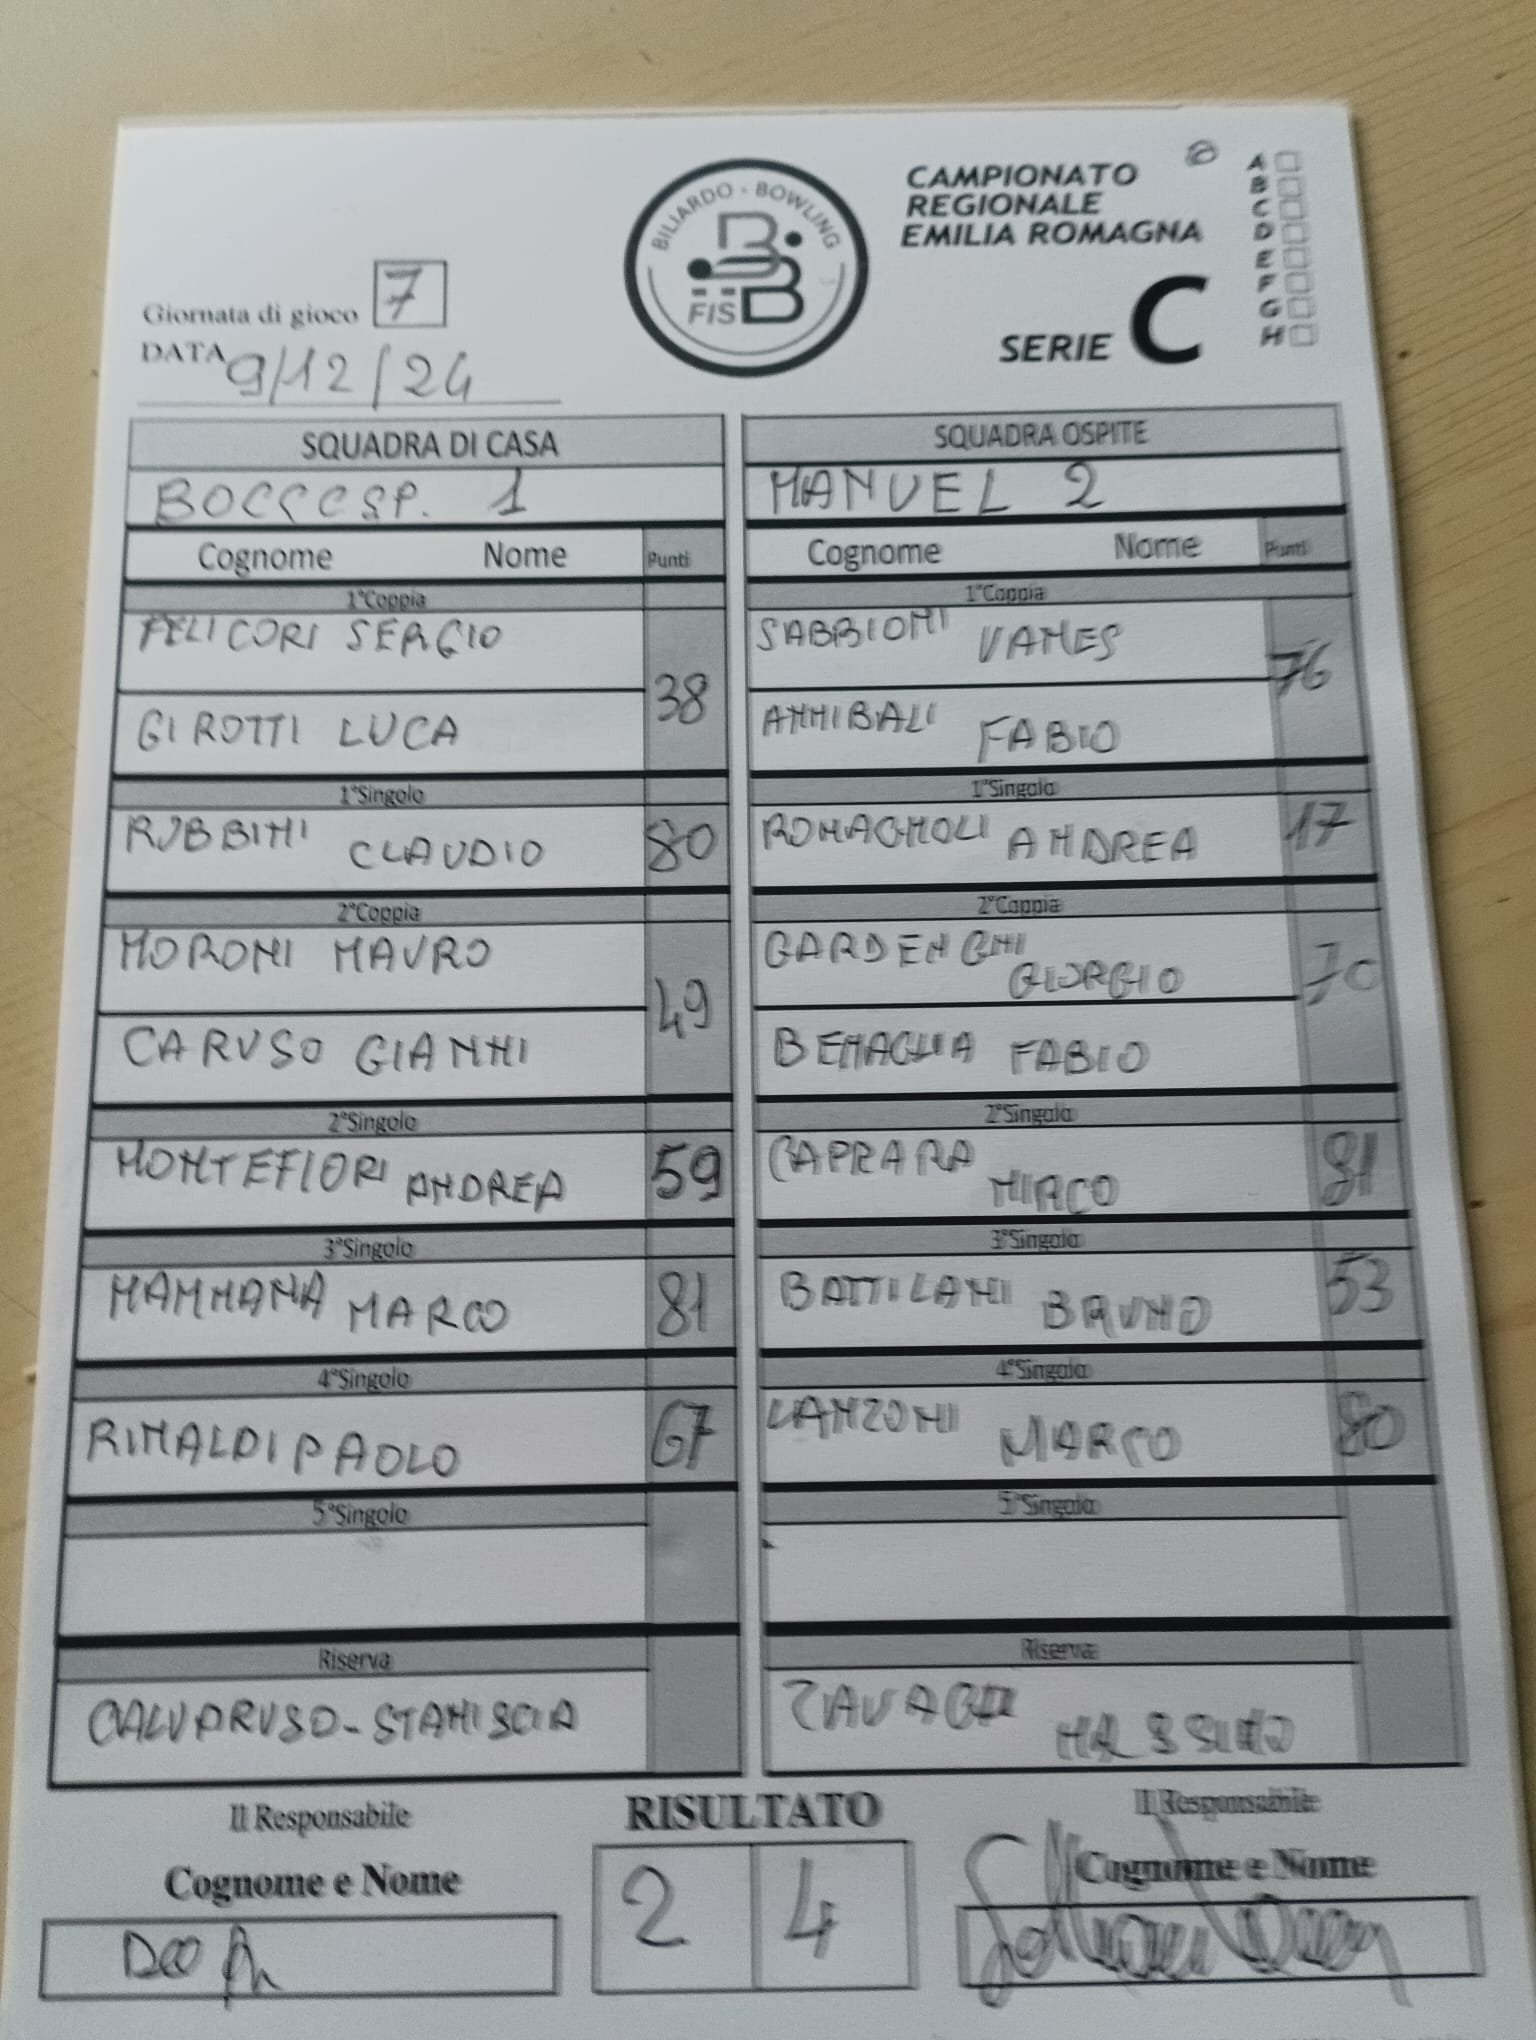 BILIARDO - BOWLING
FISBB
CAMPIONATO
REGIONALE
EMILIA ROMAGNA
SERIE C
A
B
C
D
E
F
G
H
Giornata di gioco 7
DATA 9/12/24
SQUADRA DI CASA
BOCCCSP. 1
Cognome Nome Punti
1°Coppia
FELICORI SERGIO
38
GIROTTI LUCA
1°Singolo
RUBBINI CLAUDIO 80
2°Coppia
MORONI MAURO
49
CARUSO GIANNI
2°Singolo
MONTEFIORI ANDREA 59
3°Singolo
MAMMANA MARCO 81
4°Singolo
RINALDI PAOLO 67
5°Singolo
Riserva
CALVARUSO-STANISCIA
SQUADRA OSPITE
MANUEL 2
Cognome Nome Punti
1°Coppia
SABBIONI VANES
76
ANNIBALI FABIO
1°Singolo
ROMAGNOLI ANDREA 17
2°Coppia
GARDENGHI GIORGIO
70
BENAGLIA FABIO
2°Singolo
CAPRARA MIRCO 81
3°Singolo
BATTILANI BRUNO 53
4°Singolo
LANZONI MARCO 80
5°Singolo
Riserva
Il Responsabile
Cognome e Nome
RISULTATO
2 4
Il Responsabile
Cognome e Nome